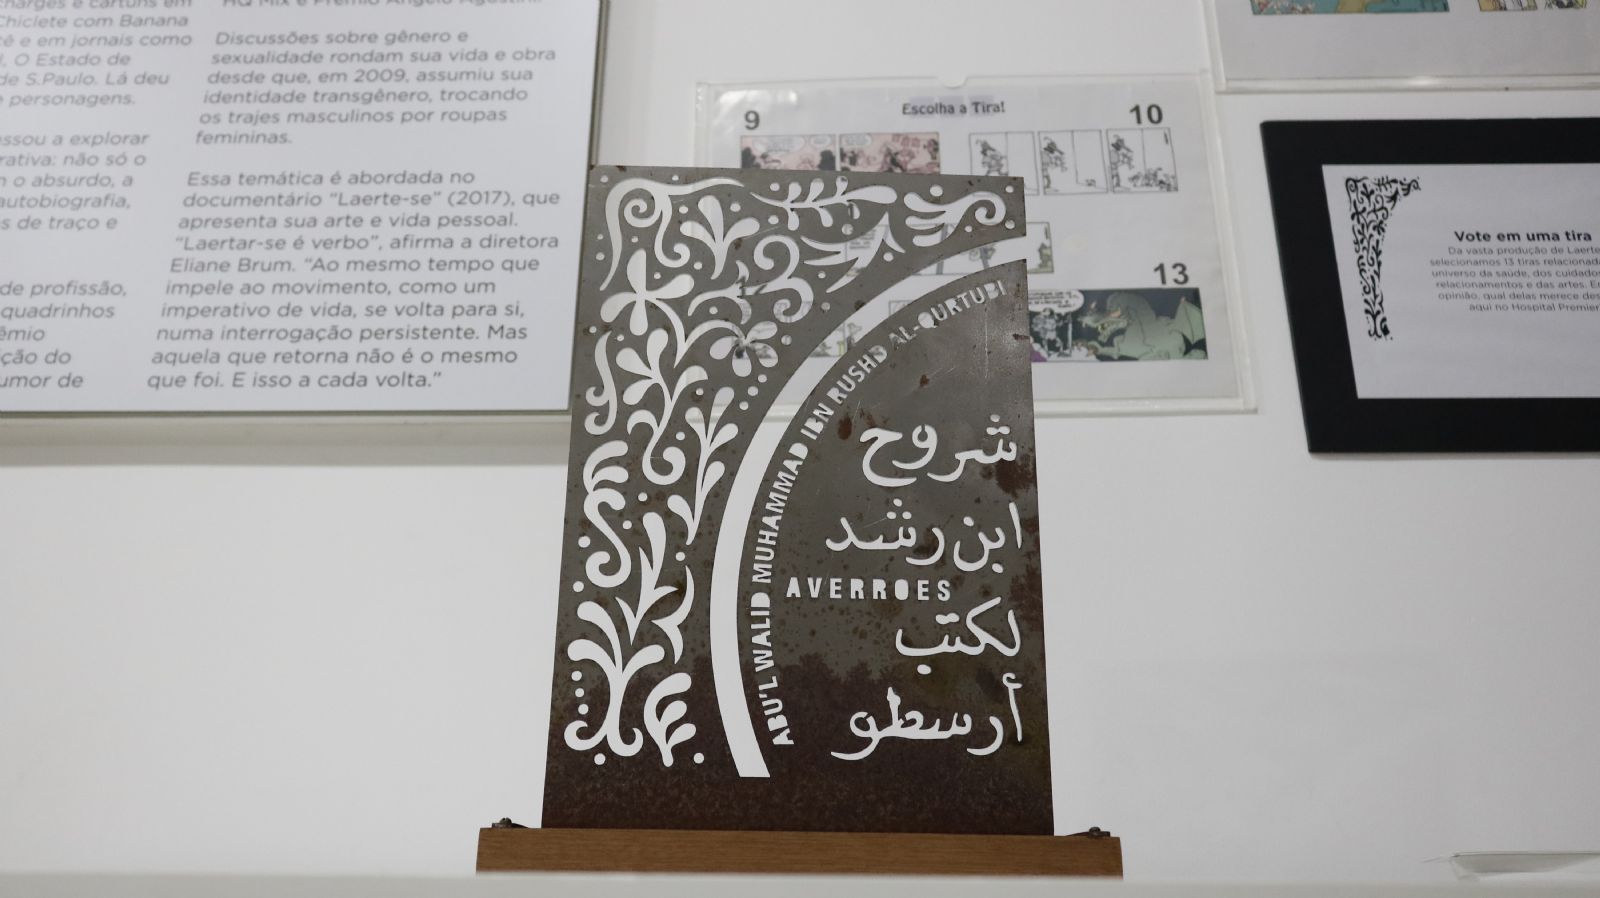 charges e cartuns em
Chiclete com Banana
e em jornais como
O Estado de
de S.Paulo. Lá deu
personagens.
a explorar
não só o
o absurdo, a
autobiografia,
de traço e
de profissão,
quadrinhos
do
de
HQ Mix e Prêmio Angelo Agostini.
Discussões sobre gênero e
sexualidade rondam sua vida e obra
desde que, em 2009, assumiu sua
identidade transgênero, trocando
os trajes masculinos por roupas
femininas.
Essa temática é abordada no
documentário “Laerte-se” (2017), que
apresenta sua arte e vida pessoal.
“Laertar-se é verbo”, afirma a diretora
Eliane Brum. “Ao mesmo tempo que
impele ao movimento, como um
imperativo de vida, se volta para si,
numa interrogação persistente. Mas
aquela que retorna não é o mesmo
que foi. E isso a cada volta.”
9
Escolha a Tira!
10
13
ABU'L WALID MUHAMMAD IBN RUSHD AL-QURTUBI
شروح
ابن رشد
AVERROES
لكتب
أرسطو
Vote em uma tira
Da vasta produção de Laerte
selecionamos 13 tiras relacionada
universo da saúde, dos cuidados
relacionamentos e das artes.
opinião, qual delas merece
aqui no Hospital Premier